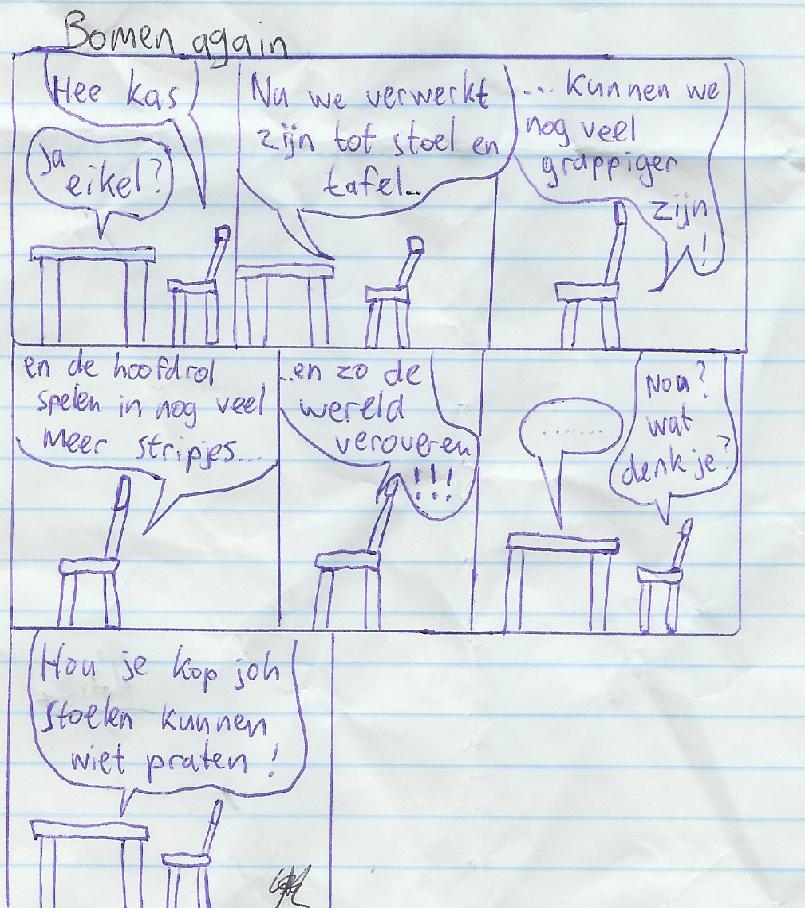 Bomen again
Hee kas
ja
eikel?
Nu we verwerkt
zijn tot stoel en
tafel...
... kunnen we
nog veel
grappiger
zijn
!
en de hoofdrol
spelen in nog veel
meer stripjes...
...en zo de
wereld
veroveren
!!!
.......
Nou?
wat
denk je?
Hou je kop joh
stoelen kunnen
niet praten!